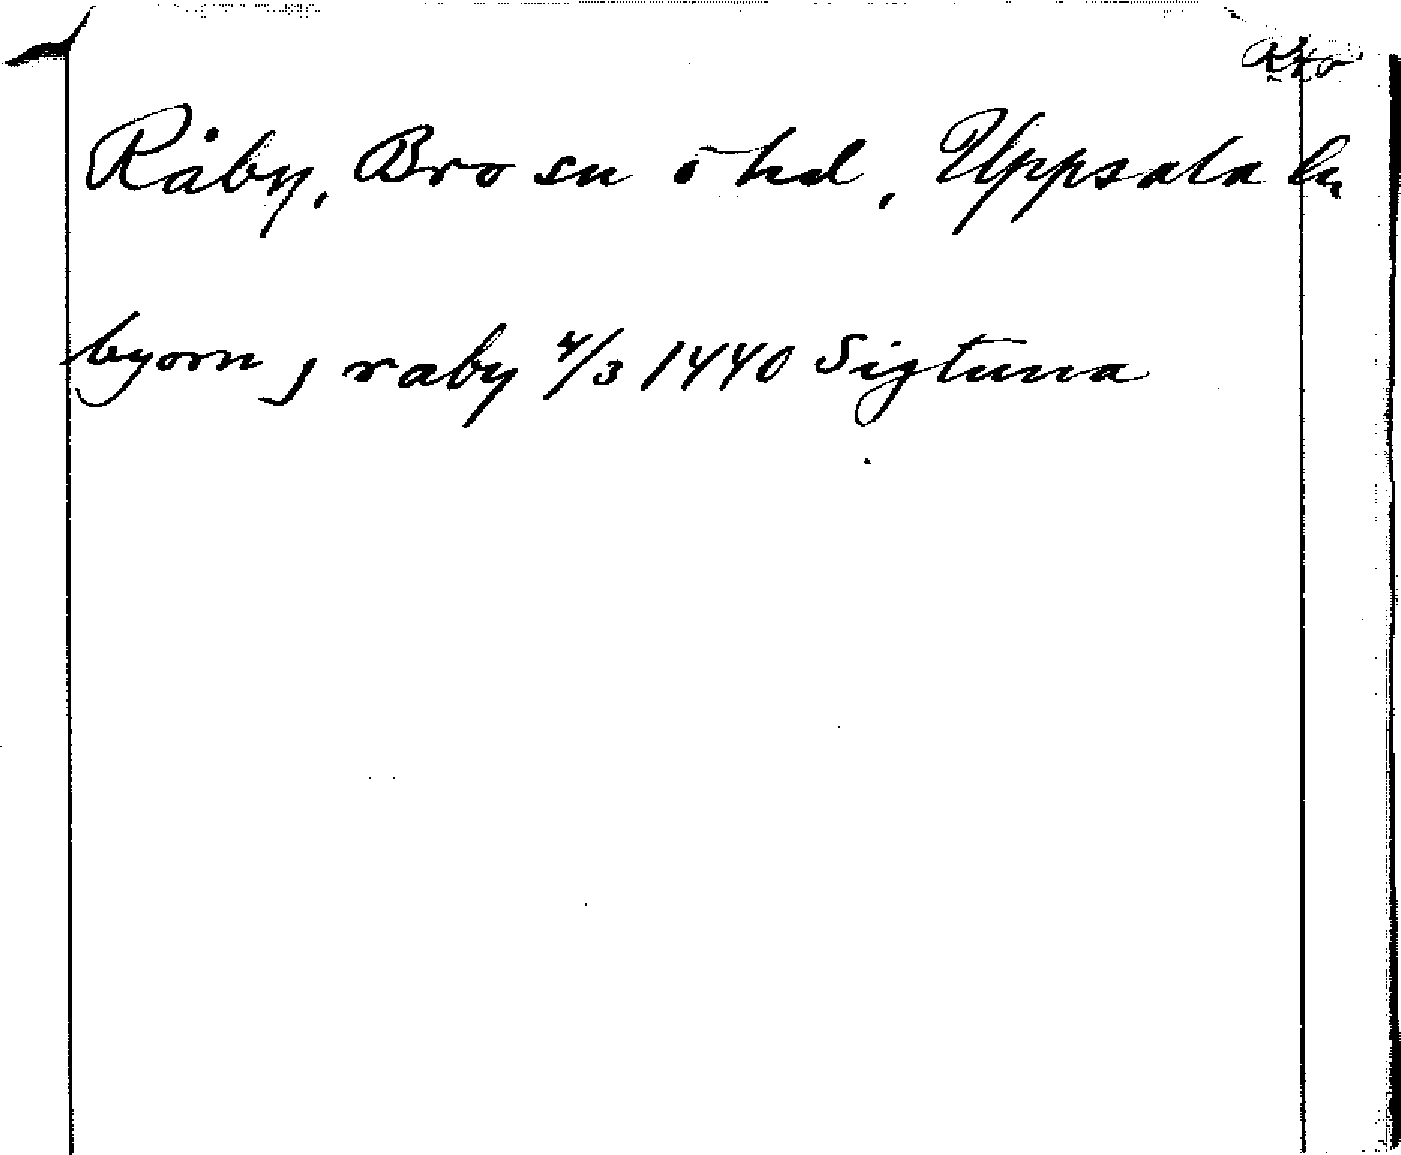 Råby, Bro sn o hd, Uppsala ln
byorn j raby 4/3 1440 Sigtuna